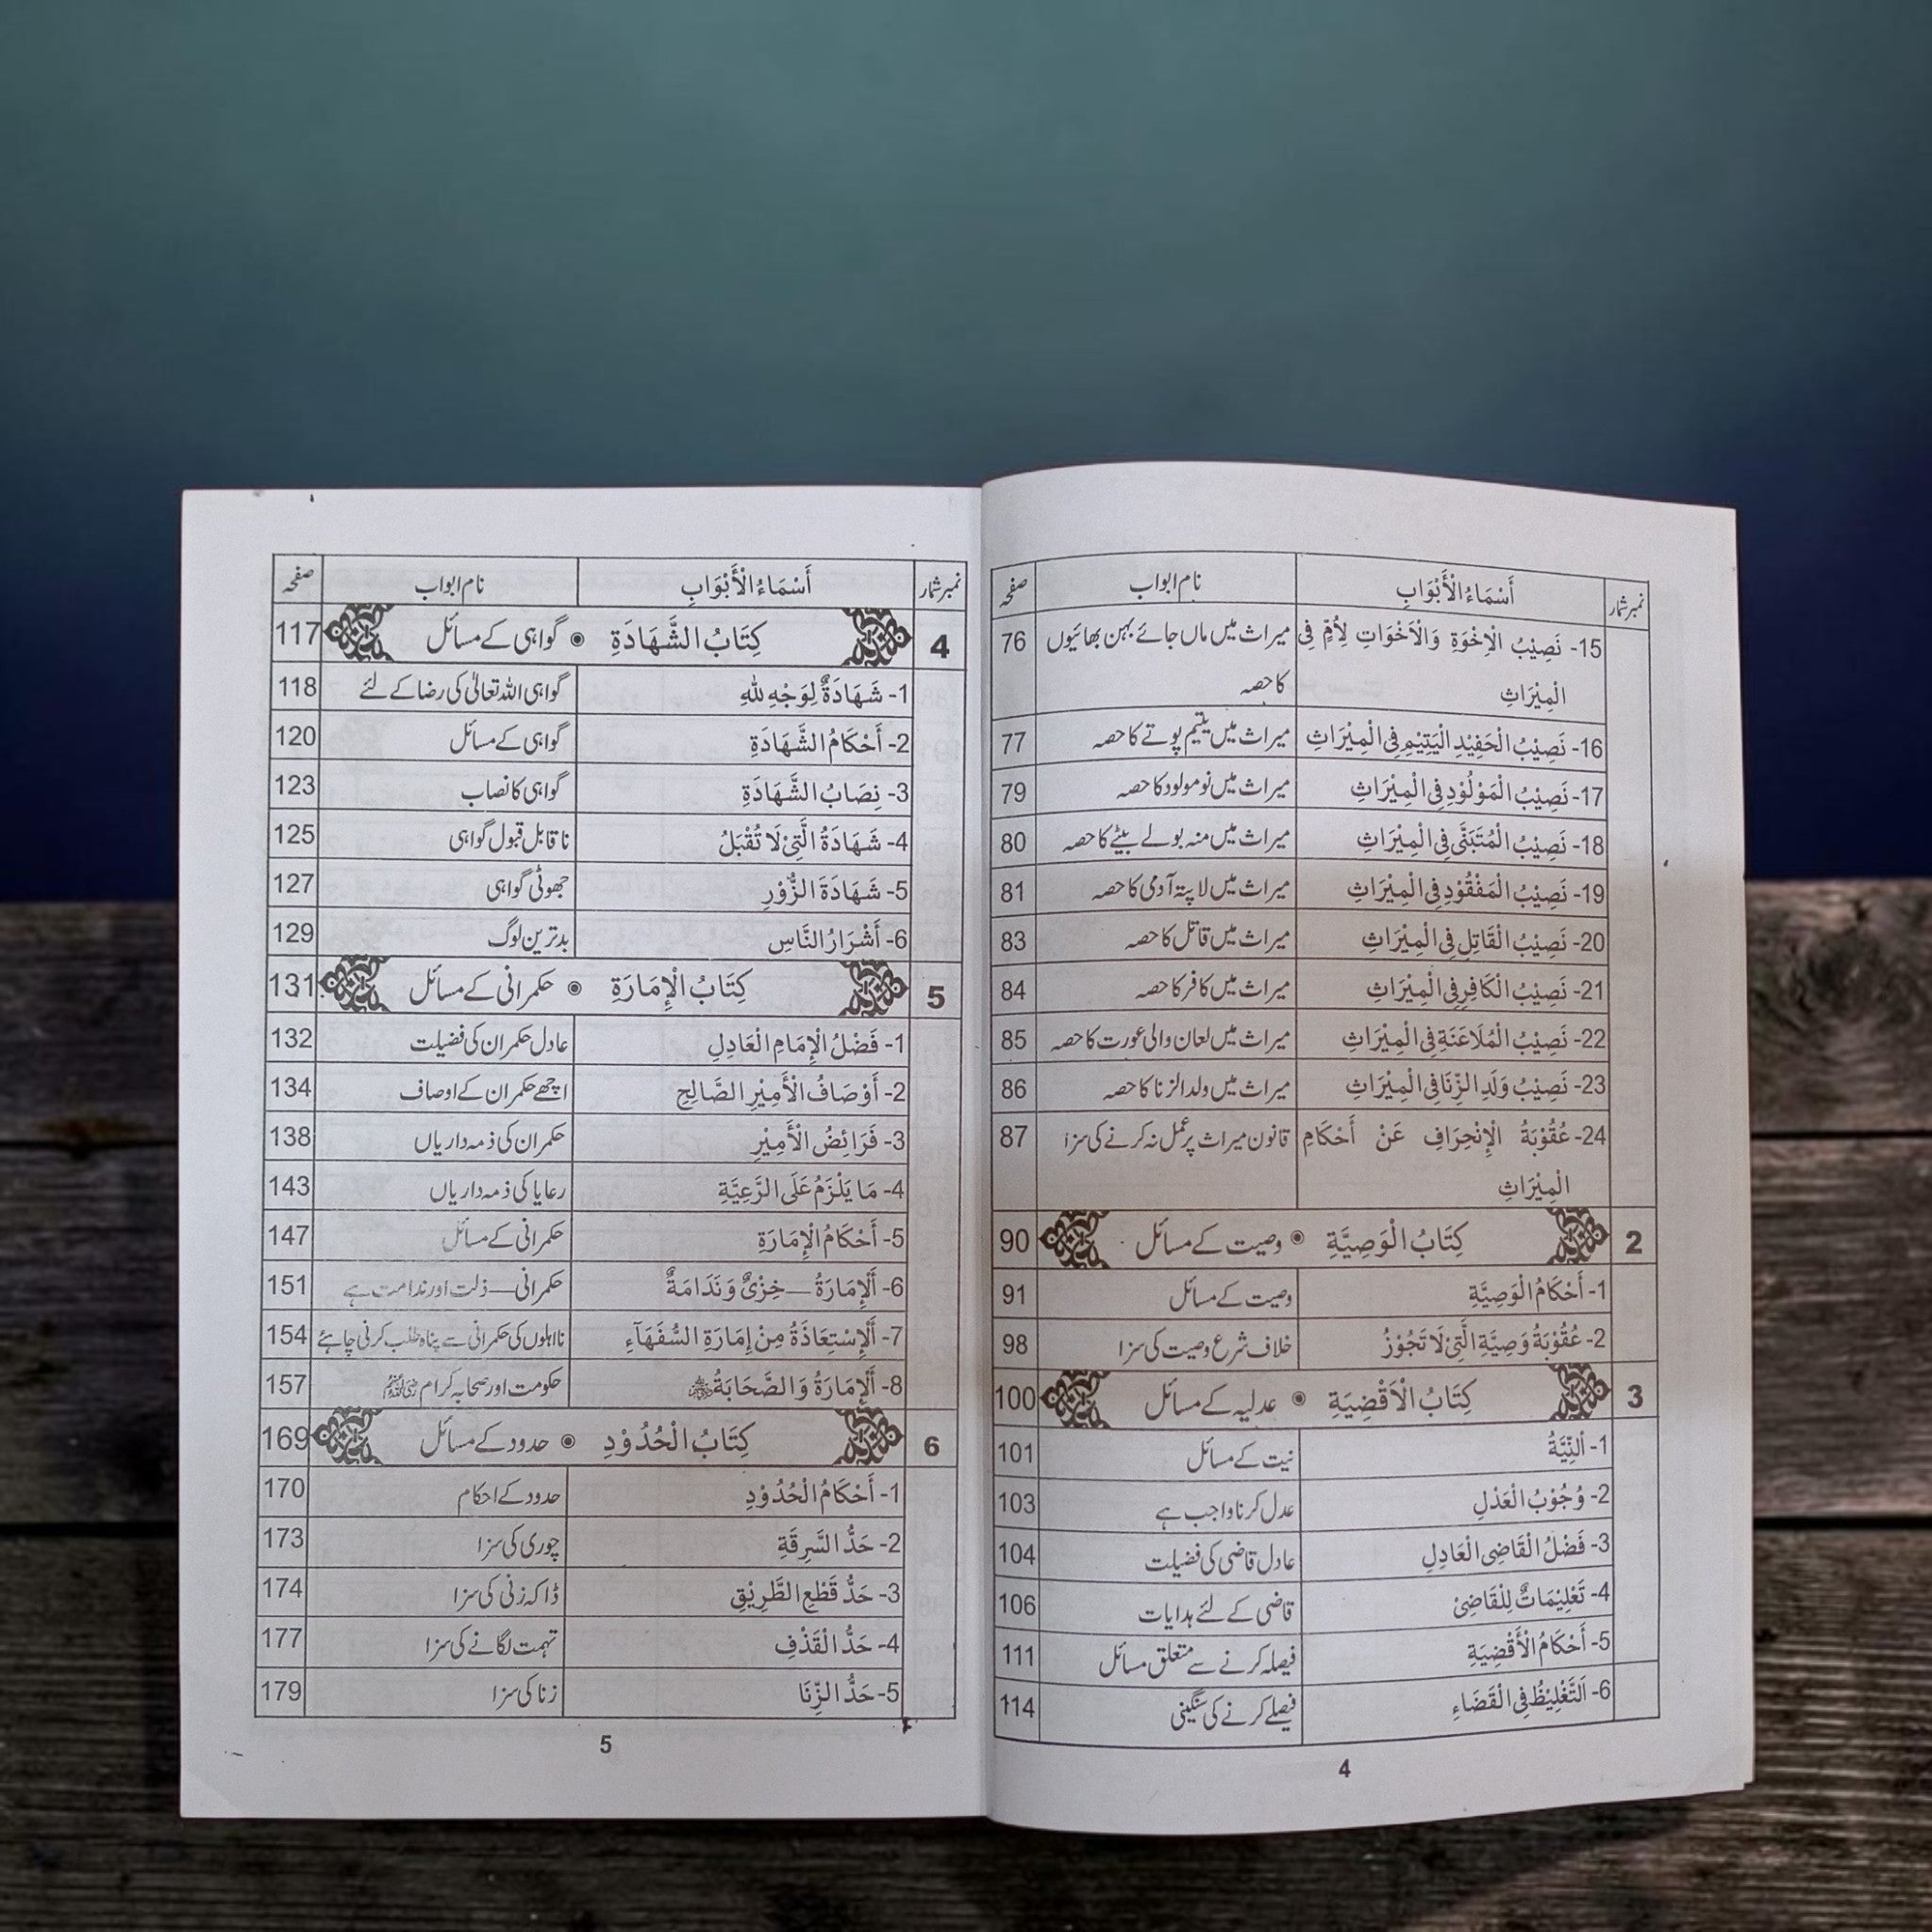 نمبر شمار أَسْمَاءُ الْأَبْوَابِ نام ابواب صفحہ
15- نَصِيْبُ الْاِخْوَةِ وَالْاَخَوَاتِ لِأُمٍّ فِي میراث میں ماں جائے بہن بھائیوں 76
الْمِيْرَاثِ کا حصہ
16- نَصِيْبُ الْحَفِيْدِ الْيَتِيْمِ فِي الْمِيْرَاثِ میراث میں یتیم پوتے کا حصہ 77
17- نَصِيْبُ الْمَوْلُوْدِ فِي الْمِيْرَاثِ میراث میں نومولود کا حصہ 79
18- نَصِيْبُ الْمُتَبَنَّى فِي الْمِيْرَاثِ میراث میں منہ بولے بیٹے کا حصہ 80
19- نَصِيْبُ الْمَفْقُوْدِ فِي الْمِيْرَاثِ میراث میں لاپتہ آدمی کا حصہ 81
20- نَصِيْبُ الْقَاتِلِ فِي الْمِيْرَاثِ میراث میں قاتل کا حصہ 83
21- نَصِيْبُ الْكَافِرِ فِي الْمِيْرَاثِ میراث میں کافر کا حصہ 84
22- نَصِيْبُ الْمُلَاعَنَةِ فِي الْمِيْرَاثِ میراث میں لعان والی عورت کا حصہ 85
23- نَصِيْبُ وَلَدِ الزِّنَا فِي الْمِيْرَاثِ میراث میں ولد الزنا کا حصہ 86
24- عُقُوْبَةُ الْإِنْحِرَافِ عَنْ أَحْكَامِ قانون میراث پر عمل نہ کرنے کی سزا 87
الْمِيْرَاثِ
2 كِتَابُ الْوَصِيَّةِ ◉ وصیت کے مسائل 90
1- أَحْكَامُ الْوَصِيَّةِ وصیت کے مسائل 91
2- عُقُوْبَةُ وَصِيَّةِ الَّتِيْ لَا تَجُوْزُ خلاف شرع وصیت کی سزا 98
3 كِتَابُ الْاَقْضِيَةِ ◉ عدلیہ کے مسائل 100
1- اَلنِّيَّةُ نیت کے مسائل 101
2- وُجُوْبُ الْعَدْلِ عدل کرنا واجب ہے 103
3- فَضْلُ الْقَاضِي الْعَادِلِ عادل قاضی کی فضیلت 104
4- تَعْلِيْمَاتٌ لِلْقَاضِيْ قاضی کے لئے ہدایات 106
5- أَحْكَامُ الْأَقْضِيَةِ فیصلہ کرنے سے متعلق مسائل 111
6- اَلتَّغْلِيْظُ فِي الْقَضَاءِ فیصلے کرنے کی سنگینی 114
4
نمبر شمار أَسْمَاءُ الْأَبْوَابِ نام ابواب صفحہ
4 كِتَابُ الشَّهَادَةِ ◉ گواہی کے مسائل 117
1- شَهَادَةٌ لِوَجْهِ للهِ گواہی اللہ تعالیٰ کی رضا کے لئے 118
2- أَحْكَامُ الشَّهَادَةِ گواہی کے مسائل 120
3- نِصَابُ الشَّهَادَةِ گواہی کا نصاب 123
4- شَهَادَةُ الَّتِيْ لَا تُقْبَلُ ناقابل قبول گواہی 125
5- شَهَادَةَ الزُّوْرِ جھوٹی گواہی 127
6- أَشْرَارُ النَّاسِ بدترین لوگ 129
5 كِتَابُ الْإِمَارَةِ ◉ حکمرانی کے مسائل 131
1- فَضْلُ الْإِمَامِ الْعَادِلِ عادل حکمران کی فضیلت 132
2- أَوْصَافُ الْأَمِيْرِ الصَّالِحِ اچھے حکمران کے اوصاف 134
3- فَرَائِضُ الْأَمِيْرِ حکمران کی ذمہ داریاں 138
4- مَا يَلْزَمُ عَلَى الرَّعِيَّةِ رعایا کی ذمہ داریاں 143
5- أَحْكَامُ الْإِمَارَةِ حکمرانی کے مسائل 147
6- أَلْإِمَارَةُ — خِزْيٌ وَنَدَامَةٌ حکمرانی — ذلت اور ندامت ہے 151
7- أَلْإِسْتِعَاذَةُ مِنْ إِمَارَةِ السُّفَهَآءِ نااہلوں کی حکمرانی سے پناہ طلب کرنی چاہئے 154
8- أَلْإِمَارَةُ وَالصَّحَابَةُ حکومت اور صحابہ کرام 157
6 كِتَابُ الْحُدُوْدِ ◉ حدود کے مسائل 169
1- أَحْكَامُ الْحُدُوْدِ حدود کے احکام 170
2- حَدُّ السَّرِقَةِ چوری کی سزا 173
3- حَدُّ قَطْعِ الطَّرِيْقِ ڈاکہ زنی کی سزا 174
4- حَدُّ الْقَذْفِ تہمت لگانے کی سزا 177
5- حَدُّ الزِّنَا زنا کی سزا 179
5